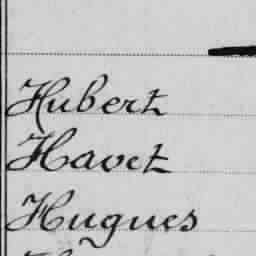 Hubert
Havet
Hugues